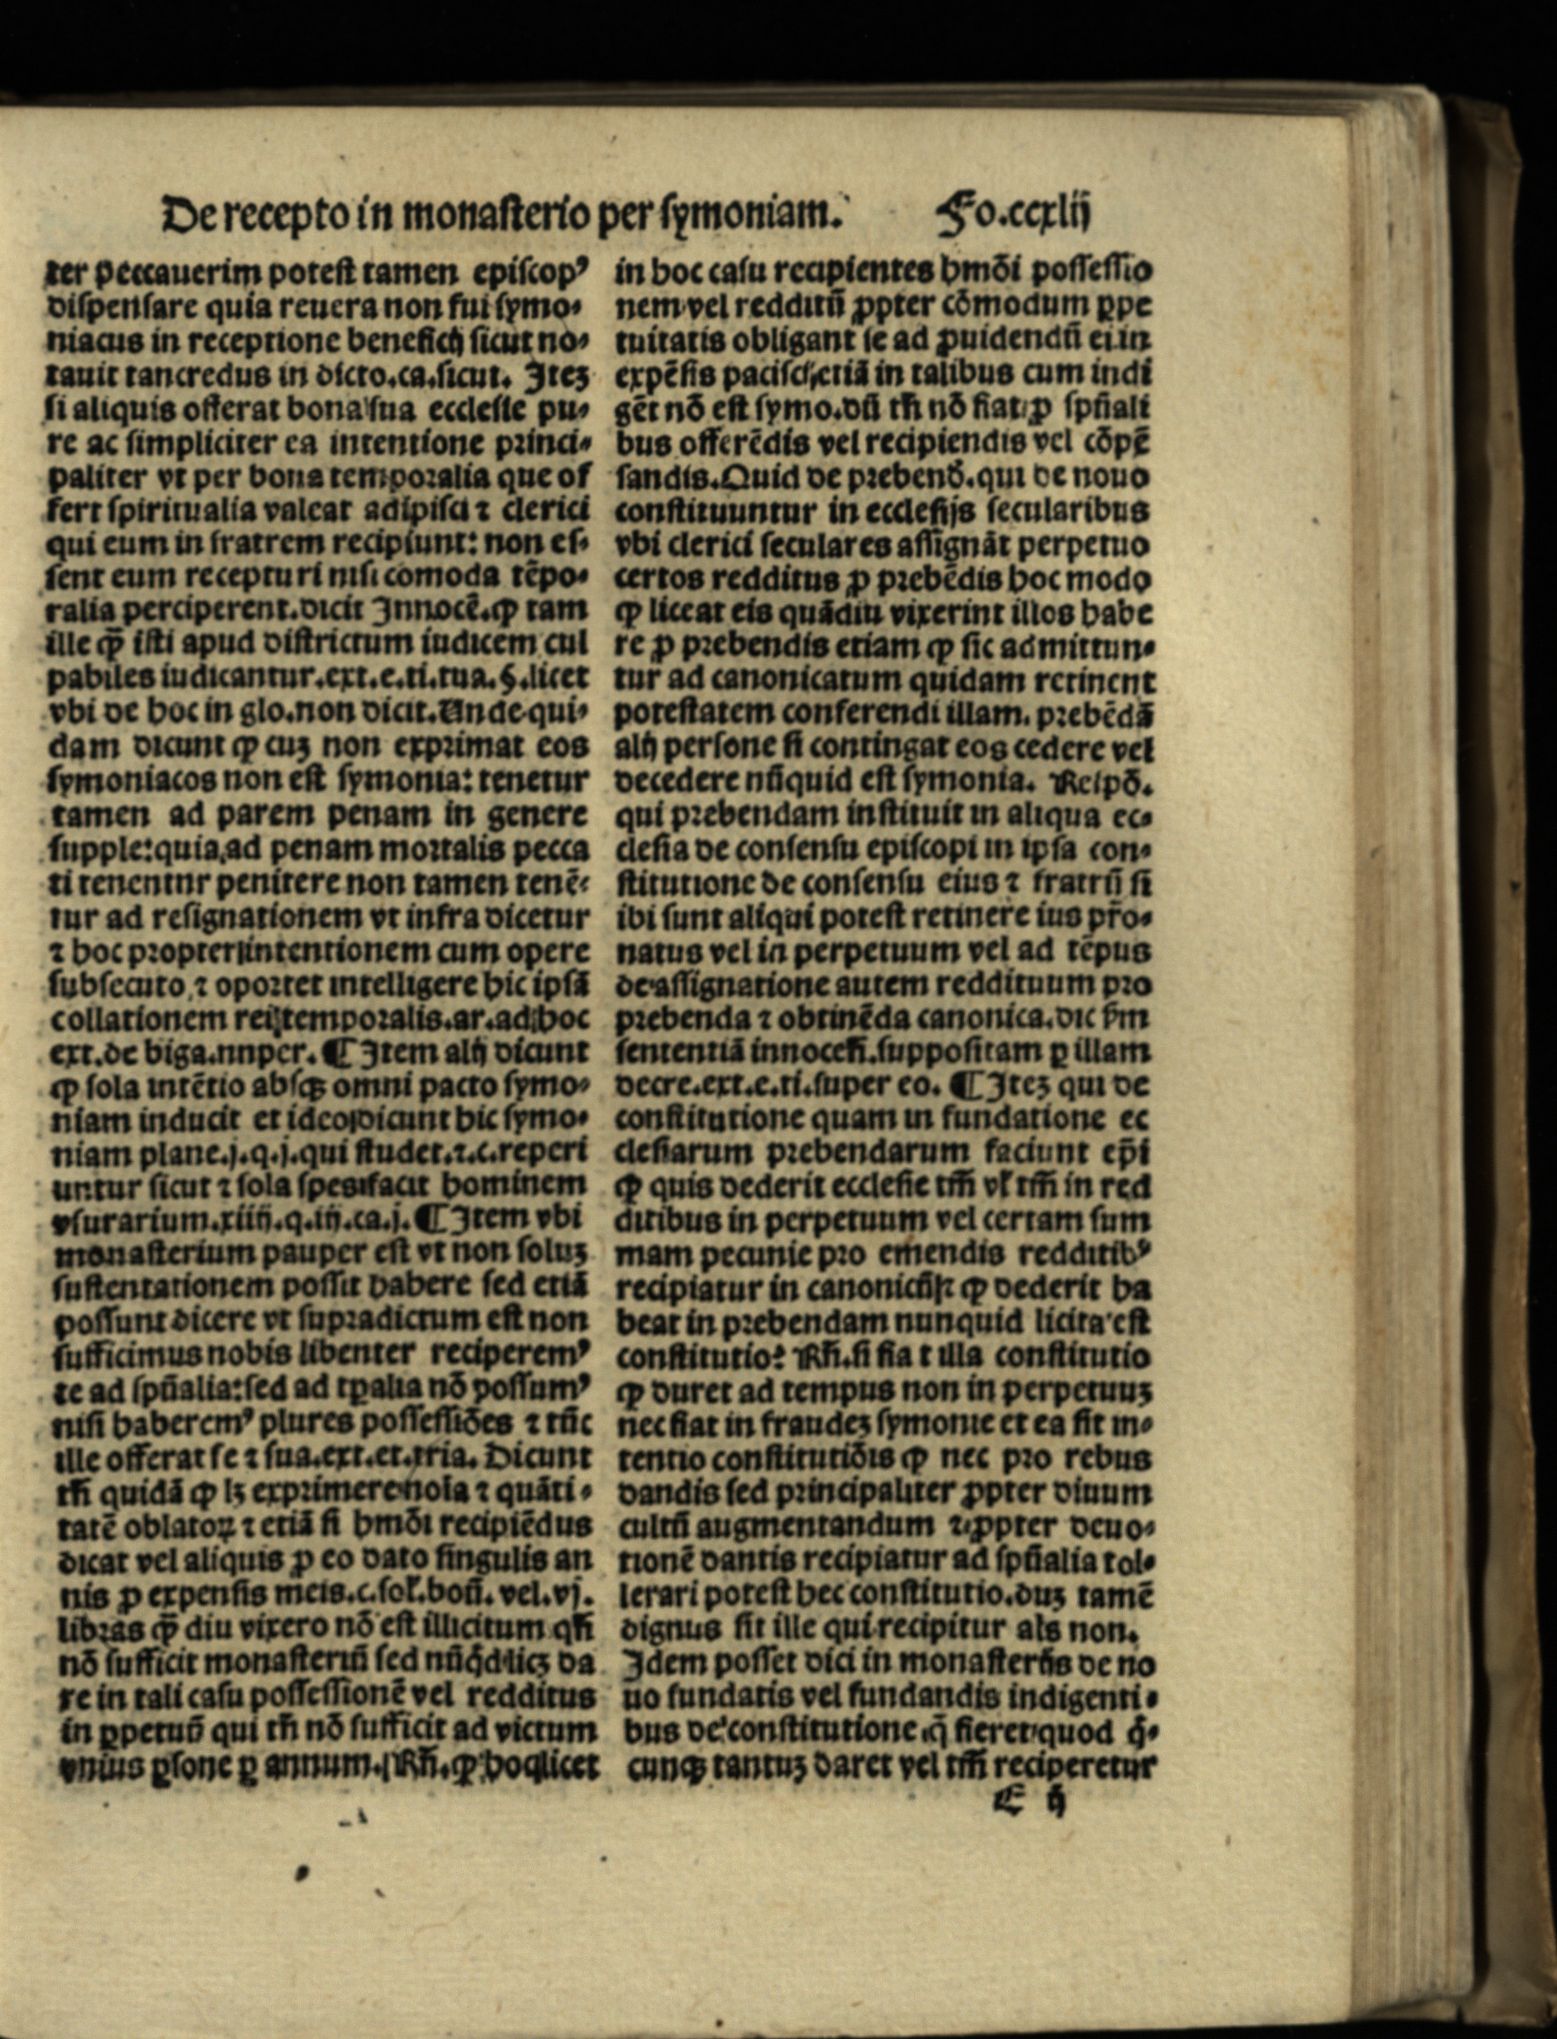 De recepto in monasterio per symoniam. Fo.ccxlij
ter peccauerim potest tamen episcopꝰ
dispensare quia reuera non fui symo⸗
niacus in receptione beneficij sicut no⸗
tauit tancredus in dicto.ca.sicut. Iteꝫ
si aliquis offerat bona sua ecclesie pu⸗
re ac simpliciter ea intentione princi⸗
paliter vt per bona temporalia que of
fert spiritualia valeat adipisci ⁊ clerici
qui eum in fratrem recipiunt: non es⸗
sent eum recepturi nisi comoda tēpo⸗
ralia perciperent.dicit Innocē.ꝙ tam
ille ꝙ̄ isti apud districtum iudicem cul
pabiles iudicantur.ext.e.ti.tua.§.licet
vbi de hoc in glo.non dicit.Unde qui⸗
dam dicunt ꝙ cuꝫ non exprimat eos
symoniacos non est symonia: tenetur
tamen ad parem penam in genere
supple:quia ad penam mortalis pecca
ti tenentnr penitere non tamen tenē⸗
tur ad resignationem vt infra dicetur
⁊ hoc propter intentionem cum opere
subsecuto ⁊ oportet intelligere hic ipsā
collationem rei temporalis.ar.ad hoc
ext.de biga.nnper. ¶ Item alij dicunt
ꝙ sola intētio absqꝫ omni pacto symo⸗
niam inducit et ideo dicunt hic symo⸗
niam plane.j.q.j.qui studet.⁊.c.reperi
untur sicut ⁊ sola spes facit hominem
vsurarium.xiiij.q.iij.ca.j. ¶ Item vbi
monasterium pauper est vt non soluꝫ
sustentationem possit habere sed etiā
possunt dicere vt supradictum est non
sufficimus nobis libenter reciperemꝰ
te ad spūalia:sed ad tꝑalia nō possumꝰ
nisi haberemꝰ plures possessiōes ⁊ tūc
ille offerat se ⁊ sua.ext.et.tria. Dicunt
tn̄ quidā ꝙ lꝫ exprimere noīa ⁊ quāti⸗
tatē oblatoꝝ ⁊ etiā si hmōi recipiēdus
dicat vel aliquis ꝓ eo dato singulis an
nis ꝓ expensis meis.c.sol̄.boñ. vel.vj.
libras ꝙ̄ diu vixero nō est illicitum qn̄
nō sufficit monasteriū sed nūqd̄ licꝫ da
re in tali casu possessionē vel redditus
in ꝑpetuū qui tn̄ nō sufficit ad victum
vnius ꝑsone ꝑ annum. Rn̄.ꝙ hoc licet
in hoc casu recipientes hmōi possessio
nem vel redditū ꝓpter cōmodum ꝑpe
tuitatis obligant se ad ꝓuidendū ei in
expēsis pacisci etiā in talibus cum indi
gēt nō est symo.dū tn̄ nō fiat ꝓ spūali
bus offerēdis vel recipiendis vel cōpē
sandis.Quid de prebend̄.qui de nouo
constituuntur in ecclesijs secularibus
vbi clerici seculares assignāt perpetuo
certos redditus ꝓ prebēdis hoc modo
ꝙ liceat eis quādiu vixerint illos habe
re ꝓ prebendis etiam ꝙ sic admittun⸗
tur ad canonicatum quidam retinent
potestatem conferendi illam. prebēdā
alij persone si contingat eos cedere vel
decedere nūquid est symonia. Respō.
qui prebendam instituit in aliqua ec⸗
clesia de consensu episcopi in ipsa con⸗
stitutione de consensu eius ⁊ fratrū si
ibi sunt aliqui potest retinere ius pr̄o⸗
natus vel in perpetuum vel ad tēpus
de assignatione autem reddituum pro
prebenda ⁊ obtinēda canonica.dic ẜm
sententiā innoceñ.suppositam ꝑ illam
decre.ext.e.ti.super eo. ¶ Iteꝫ qui de
constitutione quam in fundatione ec
clesiarum prebendarum faciunt ep̄i
ꝙ quis dederit ecclesie tm̄ vl̄ tm̄ in red
ditibus in perpetuum vel certam sum
mam pecunie pro emendis redditibꝰ
recipiatur in canonicū ⁊ ꝙ dederit ha
beat in prebendam nunquid licita est
constitutio? Rn̄.si fia t illa constitutio
ꝙ duret ad tempus non in perpetuuꝫ
nec fiat in fraudeꝫ symonie et ea sit in⸗
tentio constitutiōis ꝙ nec pro rebus
dandis sed principaliter ꝓpter diuum
cultū augmentandum ⁊ ꝓpter deuo⸗
tionē dantis recipiatur ad spūalia tol⸗
lerari potest hec constitutio.duꝫ tamē
dignus sit ille qui recipitur als non.
Idem posset dici in monasterijs de no
uo fundatis vel fundandis indigenti⸗
bus de constitutione q̄ fieret quod q̄⸗
cunqꝫ tantuꝫ daret vel tm̄ reciperetur
E ij